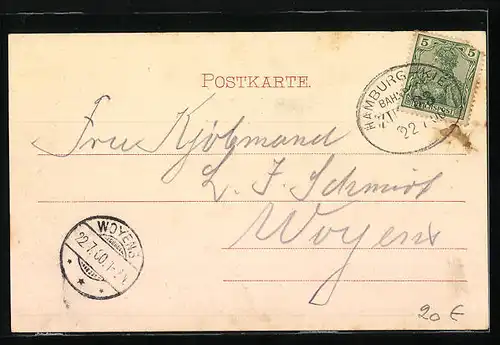 5 5
HAMBURG - KIEL
BAHN
22 7
POSTKARTE.
Frau Kjöbmand
L. J. Schmidt
Woyens
WOYENS
22.7.00.
20 €